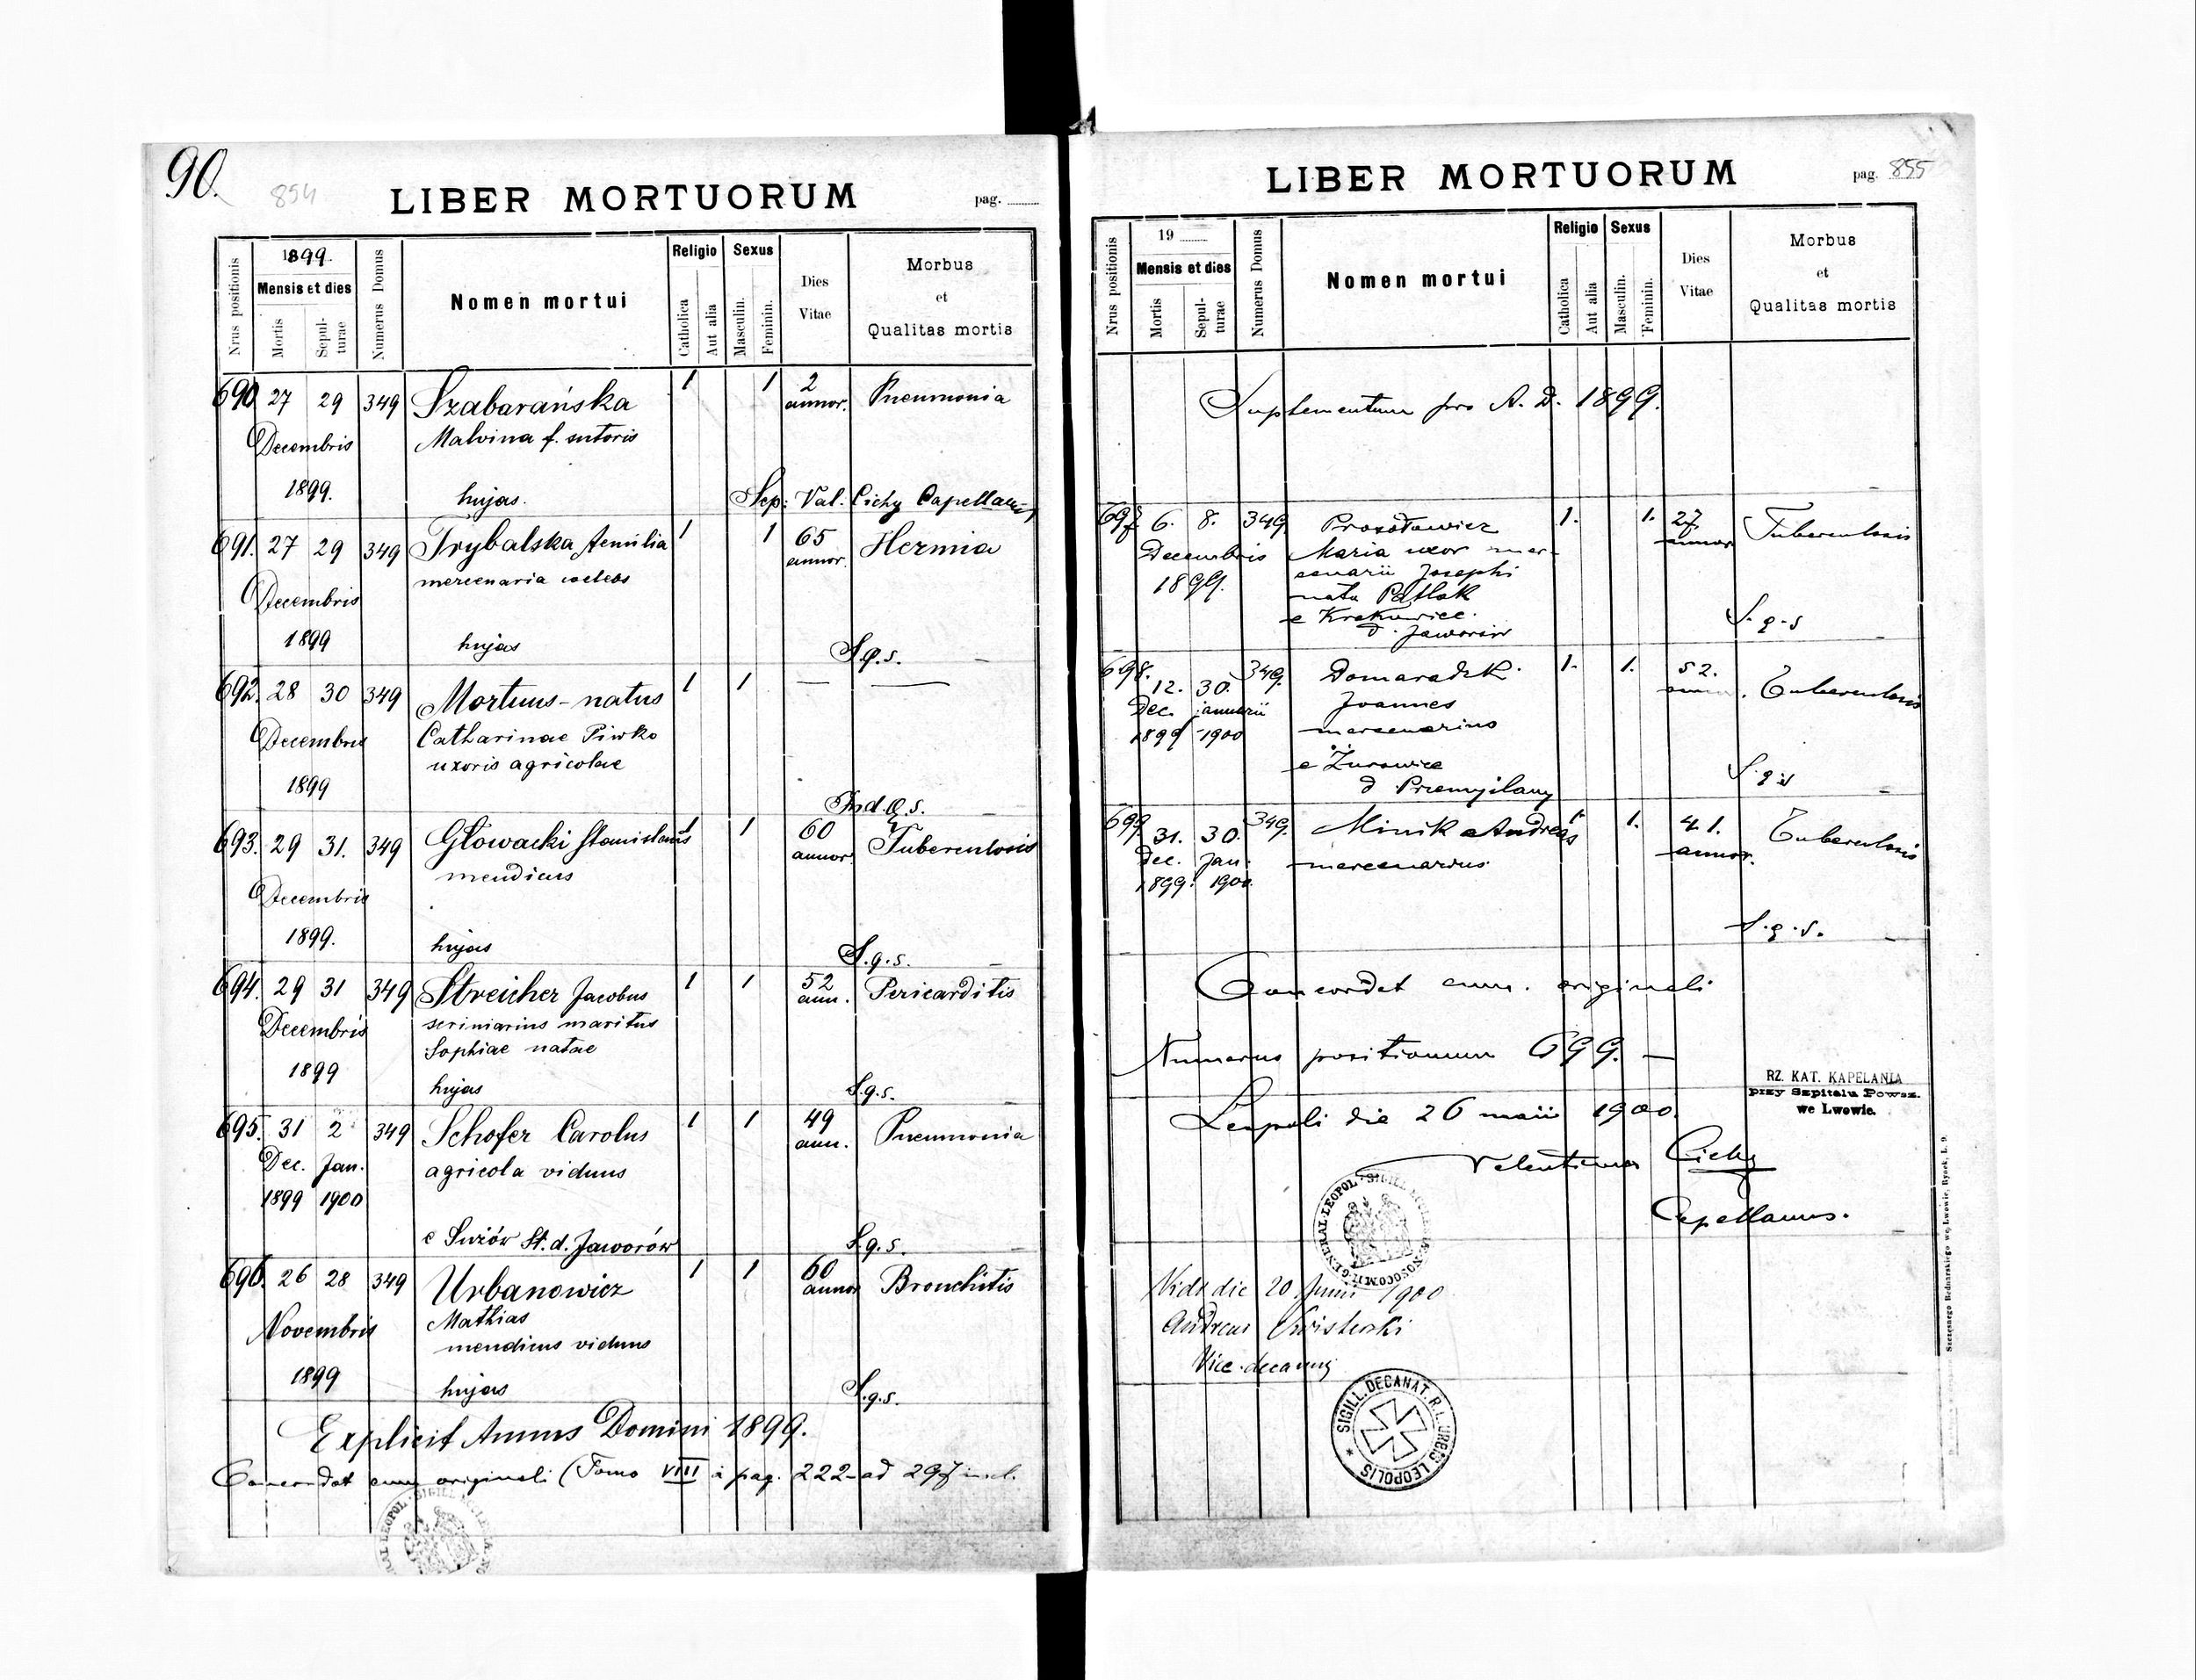 90.
854
LIBER MORTUORUM
pag.
Nrus positionis
1899.
Mensis et dies
Mortis
Sepul-
turae
Numerus Domus
Nomen mortui
Religio
Catholica
Aut alia
Sexus
Masculin.
Feminin.
Dies
Vitae
Morbus
et
Qualitas mortis
690 27 29 349 Szabarańska 1 1 2 Pneumonia
annor.
Decembris Malvina f. sutoris
1899. hujas. Sep: Val: Cichy Capellanus
691. 27 29 349 Trybalska Aemilia 1 1 65 Hernia
annor.
mercenaria coelebs
Decembris
1899 hujas S.q.s.
692. 28 30 349 Mortuus-natus 1 1 — —
Decembris Catharinae Piwko
uxoris agricolae
1899 Ind. Q. S.
693. 29 31. 349 Głowacki Stanislaus 1 1 60 Tuberculosis
annor
mendicus
Decembris
1899. hujas S.q.s.
694. 29 31 349 Streicher Jacobus 1 1 52 Pericarditis
ann.
Decembris scriniarius maritus
Sophiae natae
1899 hujas S.q.s.
695. 31 2 349 Schofer Carolus 1 1 49 Pneumonia
ann.
Dec. Jan. agricola viduus
1899 1900
e St. d. Jaworów S.q.s.
696. 26 28 349 Urbanowicz 1 1 60 Bronchitis
annor
Novembris Mathias
mendicus viduus
1899 hujas S.q.s.
Explicit Annus Domini 1899.
Concordat cum originali (Tomo VIII à pag. 222-ad 297 incl.
LIBER MORTUORUM
pag. 855
Nrus positionis
19
Mensis et dies
Mortis
Sepul-
turae
Numerus Domus
Nomen mortui
Religio
Catholica
Aut alia
Sexus
Masculin.
Feminin.
Dies
Vitae
Morbus
et
Qualitas mortis
Suplementum pro A. D. 1899.
697 6. 8. 349 1. 1. 27 Tuberculosis
annor
Decembris Maria uxor mer-
1899. cenarii Josephi
nata
e Krakowiec.
d. Jaworów S.q.s
698. 12. 30. 349. Domaradzk. 1. 1. 52. Tuberculosis
Dec. januarii Joannes
1899 -1900 mercenarius
e Żurowice
d Przemyślany S.q.s
699 31. 30. 349. Minik Andreas 1 1. 41. Tuberculosis
annor.
Dec. Jan. mercenarius
1899. 1900.
S.q.s.
Concordat cum originali
Numerus positionum 699. —
RZ. KAT. KAPELANIA
przy Szpitalu Powsz.
we Lwowie.
Leopoli die 26 maii 1900.
Valentinus Cichy
Capellanus.
Vidi die 20 Junii 1900
Andreas
Vice-decanus
SIGILL. DECANAT. R. L. URBIS LEOPOLIS